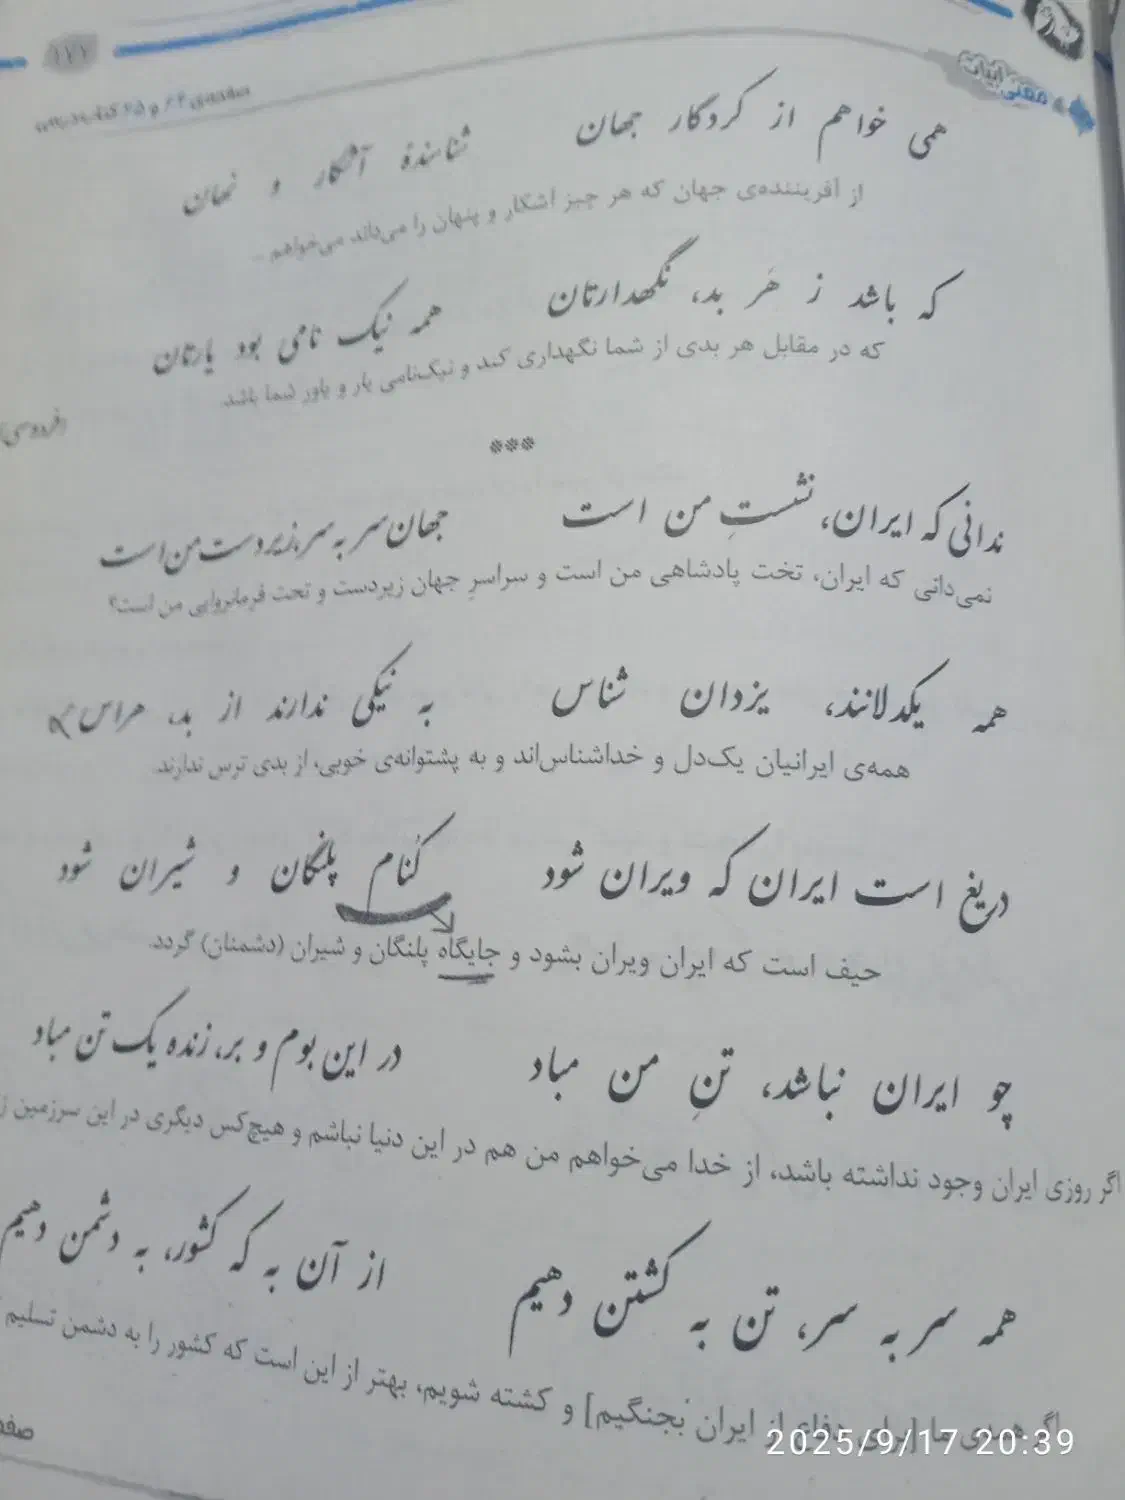 ۱۷۱
معنی ابیات
همی خواهم از کردگار جهان شناسندهٔ آشکار و نهان
از آفریننده‌ی جهان که هر چیز آشکار و پنهان را می‌داند می‌خواهم ...
که باشد ز هَر بد، نگهدارتان همه نیک نامی بود یارتان
که در مقابل هر بدی از شما نگهداری کند و نیک‌نامی یار و یاور شما باشد.
(فردوسی)
***
ندانی که ایران، نشستِ من است جهان سر به سر، زیر دست من است
نمی‌دانی که ایران، تخت پادشاهی من است و سراسرِ جهان زیردست و تحت فرمانروایی من است؟
همه یکدلانند، یزدان شناس به نیکی ندارند از بد، هراس
همه‌ی ایرانیان یک‌دل و خداشناس‌اند و به پشتوانه‌ی خوبی، از بدی ترس ندارند.
دریغ است ایران که ویران شود کُنام پلنگان و شیران شود
حیف است که ایران ویران بشود و جایگاه پلنگان و شیران (دشمنان) گردد.
چو ایران نباشد، تنِ من مباد در این بوم و بر، زنده یک تن مباد
اگر روزی ایران وجود نداشته باشد، از خدا می‌خواهم من هم در این دنیا نباشم و هیچ‌کس دیگری در این سرزمین
همه سر به سر، تن به کشتن دهیم از آن به که کشور، به دشمن دهیم
اگر همه‌ی ما [برای دفاع از ایران بجنگیم] و کشته شویم، بهتر از این است که کشور را به دشمن تسلیم
2025/9/17 20:39